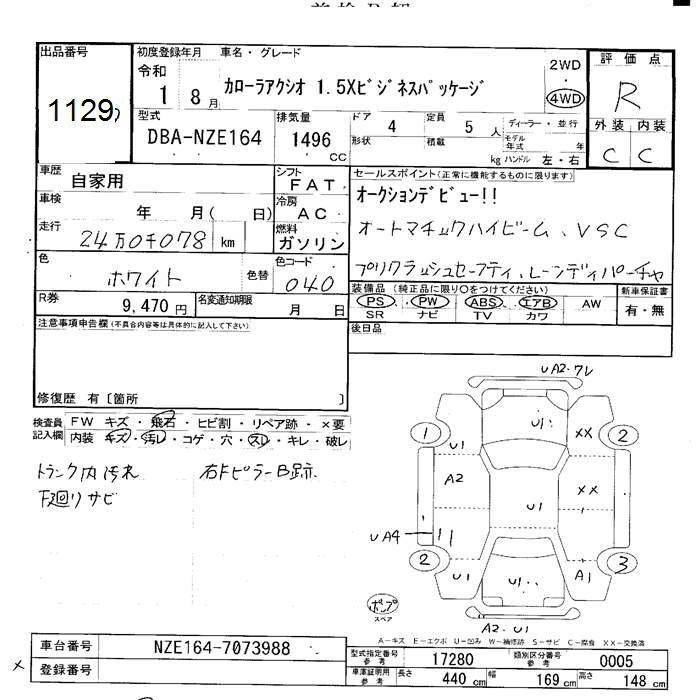 出品番号
1129
初度登録年月
車名・グレード
令和
1 8月
カローラアクシオ 1.5Xビジネスパッケージ
2WD
4WD
評価点
R
外装 内装
C C
型式
DBA-NZE164
排気量
1496
CC
ドア 4
定員 5 人
形状
積載
kg
ディーラー・並行
モデル年式 年
ハンドル 左・右
車歴 自家用
シフト FAT
車検 年 月( 日)
冷房 AC
走行 24万0千078 km
燃料 ガソリン
色 ホワイト 色替
色コード 040
R券 9,470 円
名変通知期限 月 日
セールスポイント(正常に機能するものに限ります)
オークションデビュー!!
オートマチックハイビーム、VSC
プリクラッシュセーフティ、レーンディパーチャ
装備品 (純正品に限り○をつけてください)
PS PW ABS エアB AW
SR ナビ TV カワ
新車保証書
有・無
後日品
注意事項申告欄(不具合内容等は具体的に記入して下さい)
修復歴 有〔箇所 〕
検査員記入欄
FW キズ・飛石・ヒビ割・リペア跡・×要
内装・キズ・汚れ・コゲ・穴・スレ・キレ・破レ
トランク内汚れ
下廻りサビ
右Fピラー B跡
UA2・フレ
1
U1
U1
XX
2
A2
U1
XX
UA4
2
U1
U1
A1
3
A2・U1
ポンプ
スペア
A-キズ E-エクボ U-凹み W-補修跡 S-サビ C-腐食 XX-交換済
車台番号 NZE164-7073988
登録番号
×
型式指定番号 参考 17280
類別区分番号 参考 0005
車庫証明用 参考
長さ 440 cm
幅 169 cm
高さ 148 cm